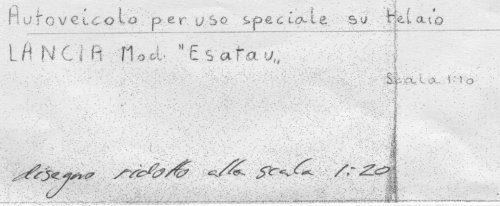 Autoveicolo per uso speciale su telaio
LANCIA Mod. "Esatau„
Scala 1:10
disegno ridotto alla scala 1:20